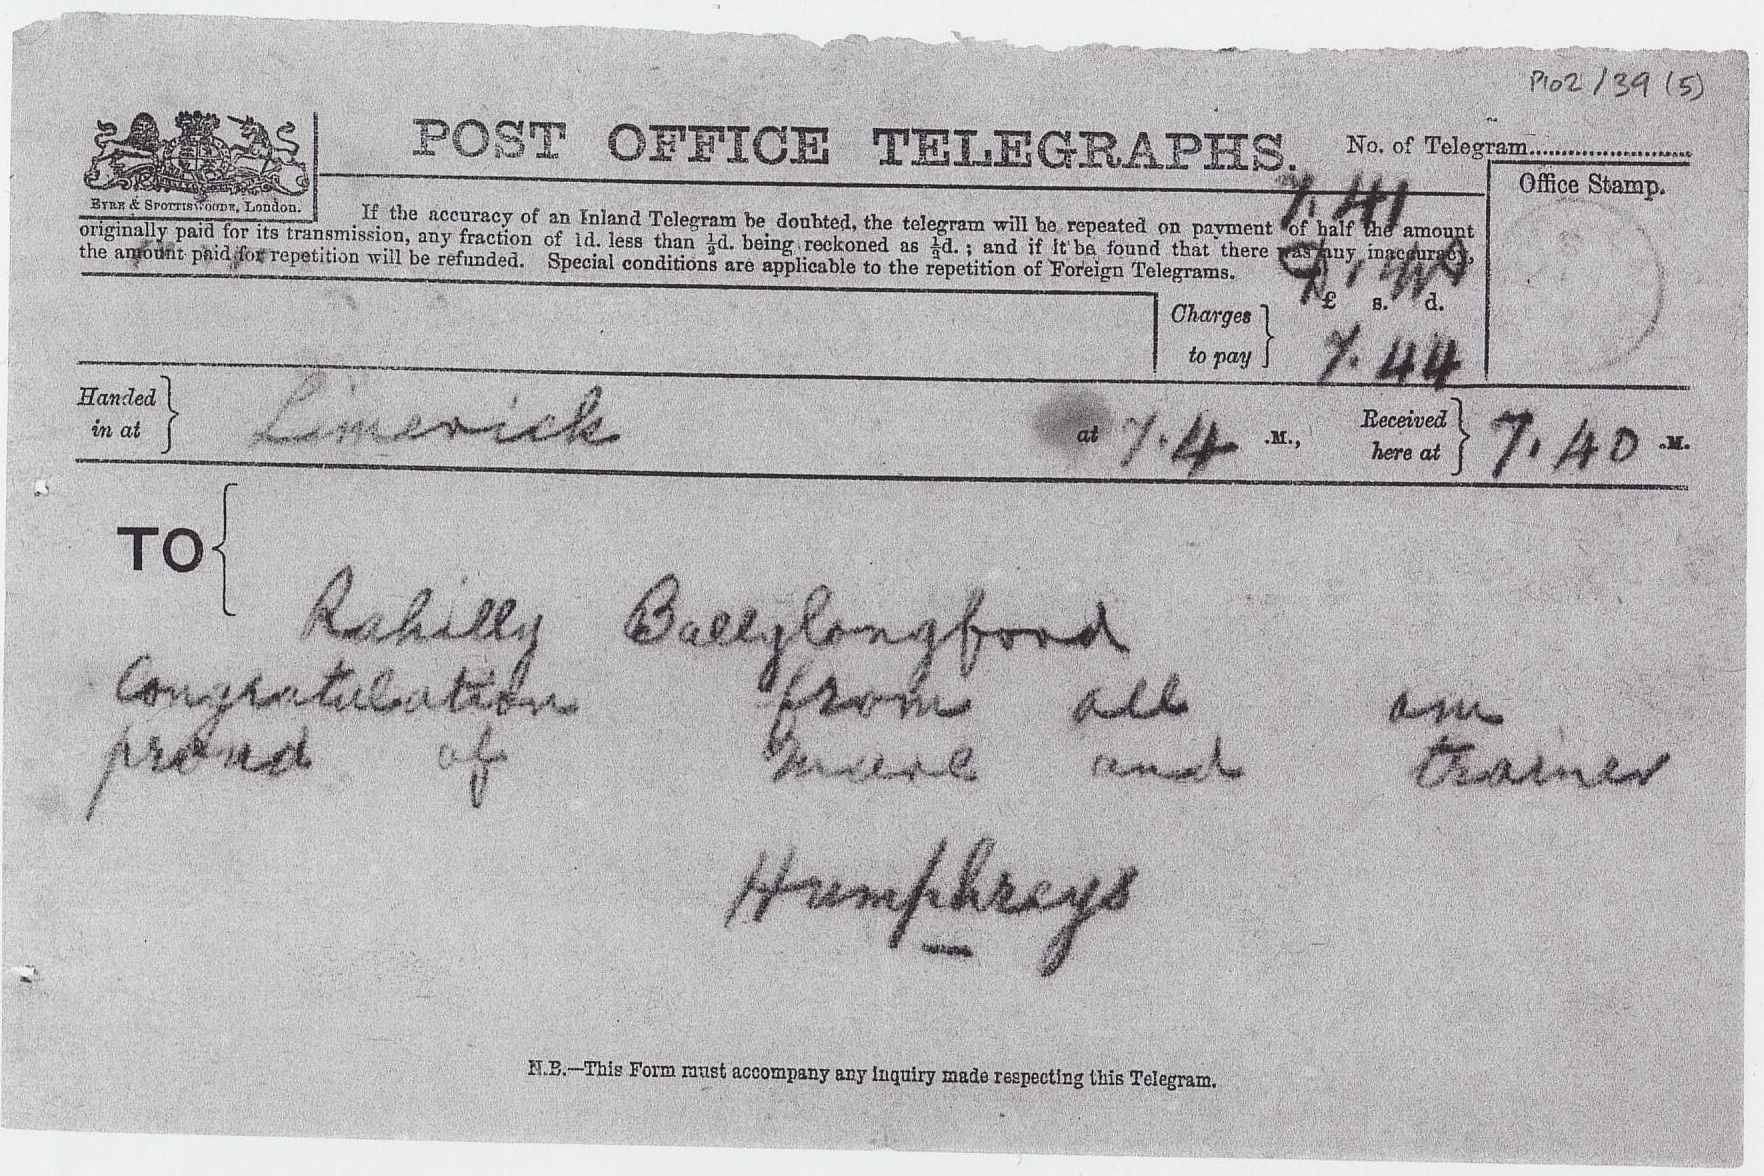 P102/39(5)
POST OFFICE TELEGRAPHS.
No. of Telegram
EYRE & SPOTTISWOODE, London.
Office Stamp.
7.41
If the accuracy of an Inland Telegram be doubted, the telegram will be repeated on payment of half the amount
originally paid for its transmission, any fraction of 1d. less than ½d. being reckoned as ½d.; and if it be found that there was any inaccuracy,
the amount paid for repetition will be refunded. Special conditions are applicable to the repetition of Foreign Telegrams.
Charges to pay
£ s. d.
7.44
Handed in at
Limerick
at 7.4 .M.,
Received here at
7.40 .M.
TO
Rahilly Ballylongford
Congratulation from all am
proud of mare and trainer
Humphreys
N.B.—This Form must accompany any Inquiry made respecting this Telegram.